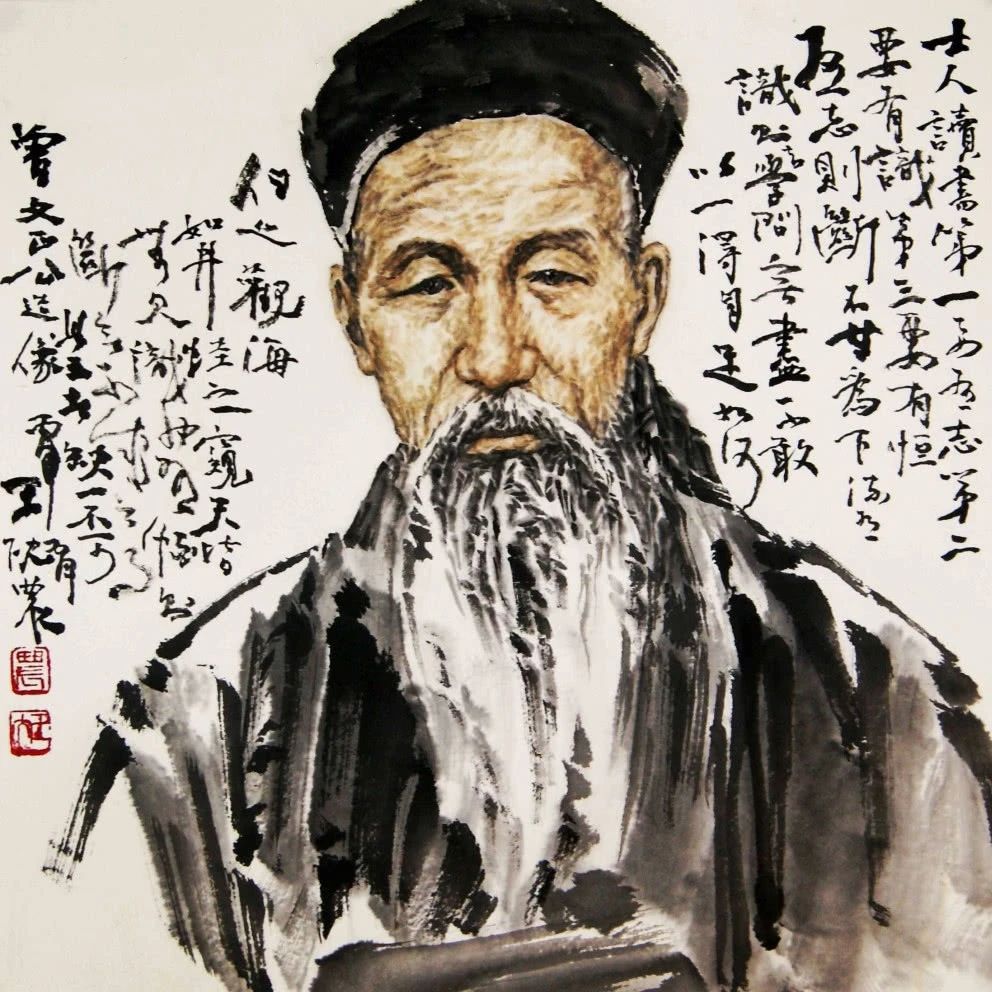 士人讀書第一要有志第二
要有識第三要有恒
有志則斷不甘為下流有
識則知學問無盡不敢
以一得自足如河
伯之觀海
如井蛙之窺天皆
無見識也有恆則
斷無不成之事
此三者缺一不可
曾文正公造像